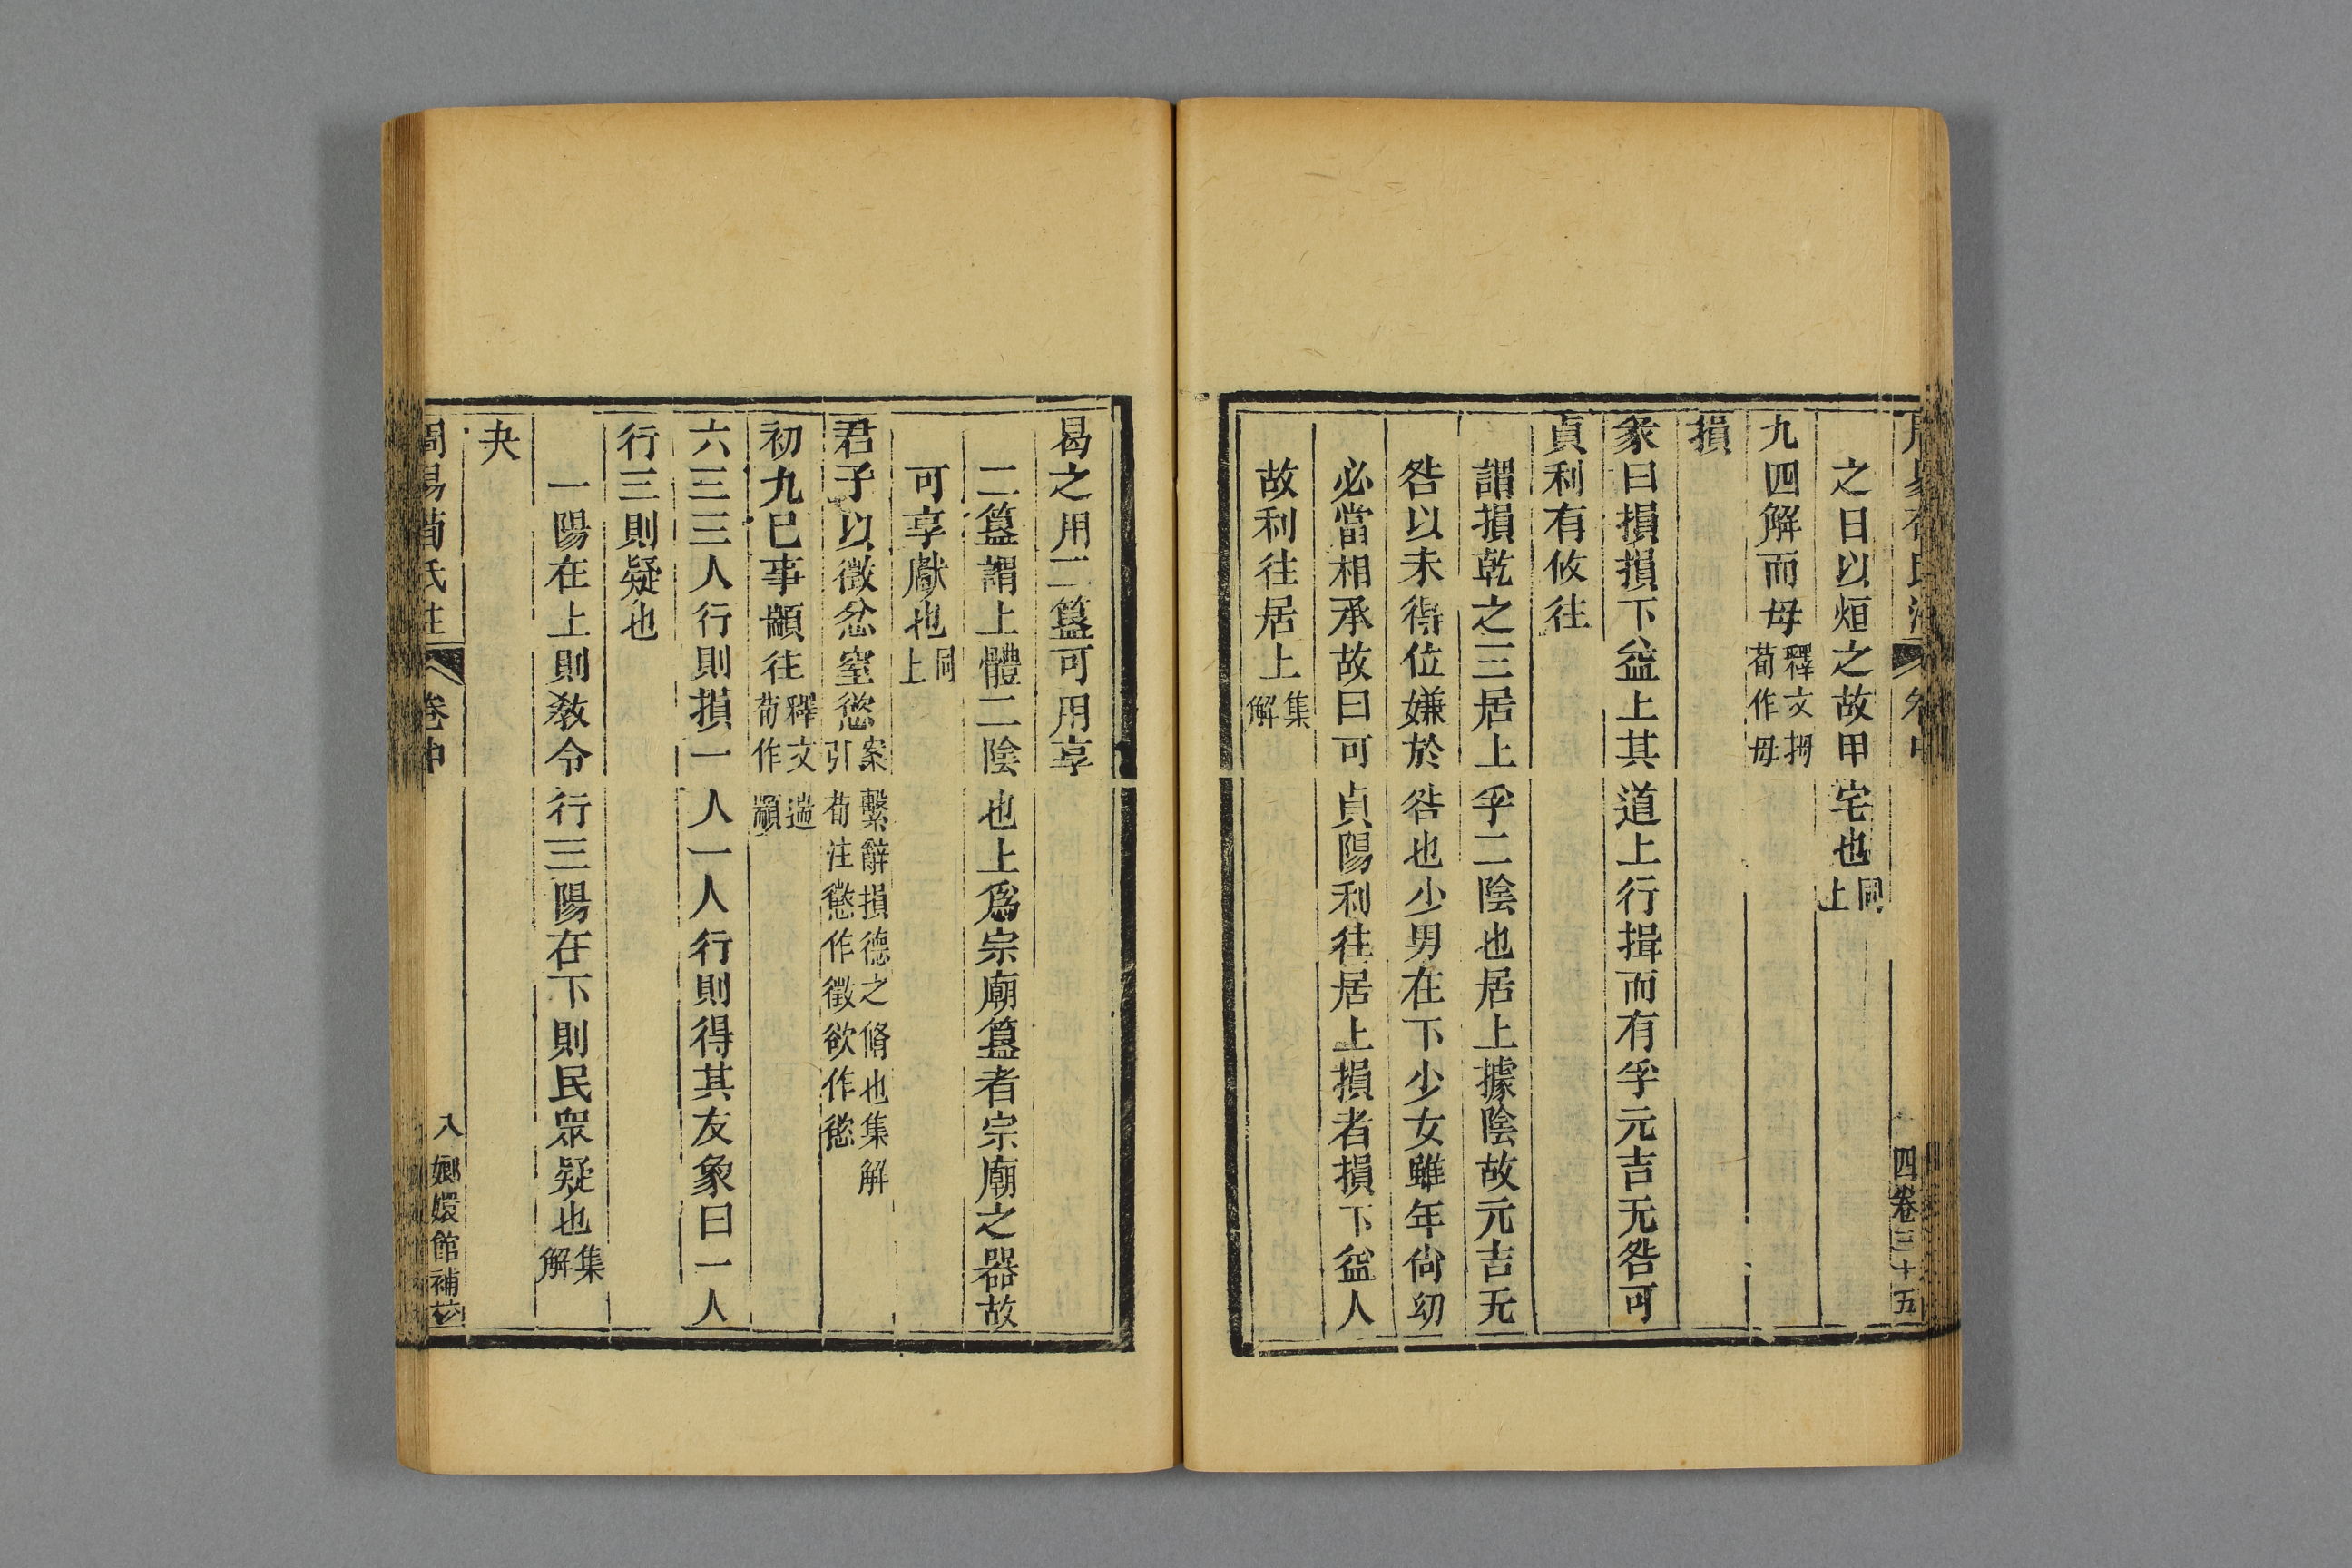 之日以烜之故甲宅也同上
九四解而母釋文拇荀作母
損
彖曰損損下益上其道上行損而有孚元吉无咎可
貞利有攸往
謂損乾之三居上孚二陰也居上據陰故元吉无
咎以未得位嫌於咎也少男在下少女雖年尙幼
必當相承故曰可貞陽利往居上損者損下益人
故利往居上集解
曷之用二簋可用享
二簋謂上體二陰也上爲宗廟簋者宗廟之器故
可享獻也同上
君子以徵忿窒慾案繫辭損德之脩也集解引荀注懲作徵欲作慾
初九巳事顓往釋文遄荀作顓
六三三人行則損一人一人行則得其友象曰一人
行三則疑也
一陽在上則教令行三陽在下則民衆疑也集解
夬
周易荀氏注 卷中 八 嫏嬛館補校
四卷三十五